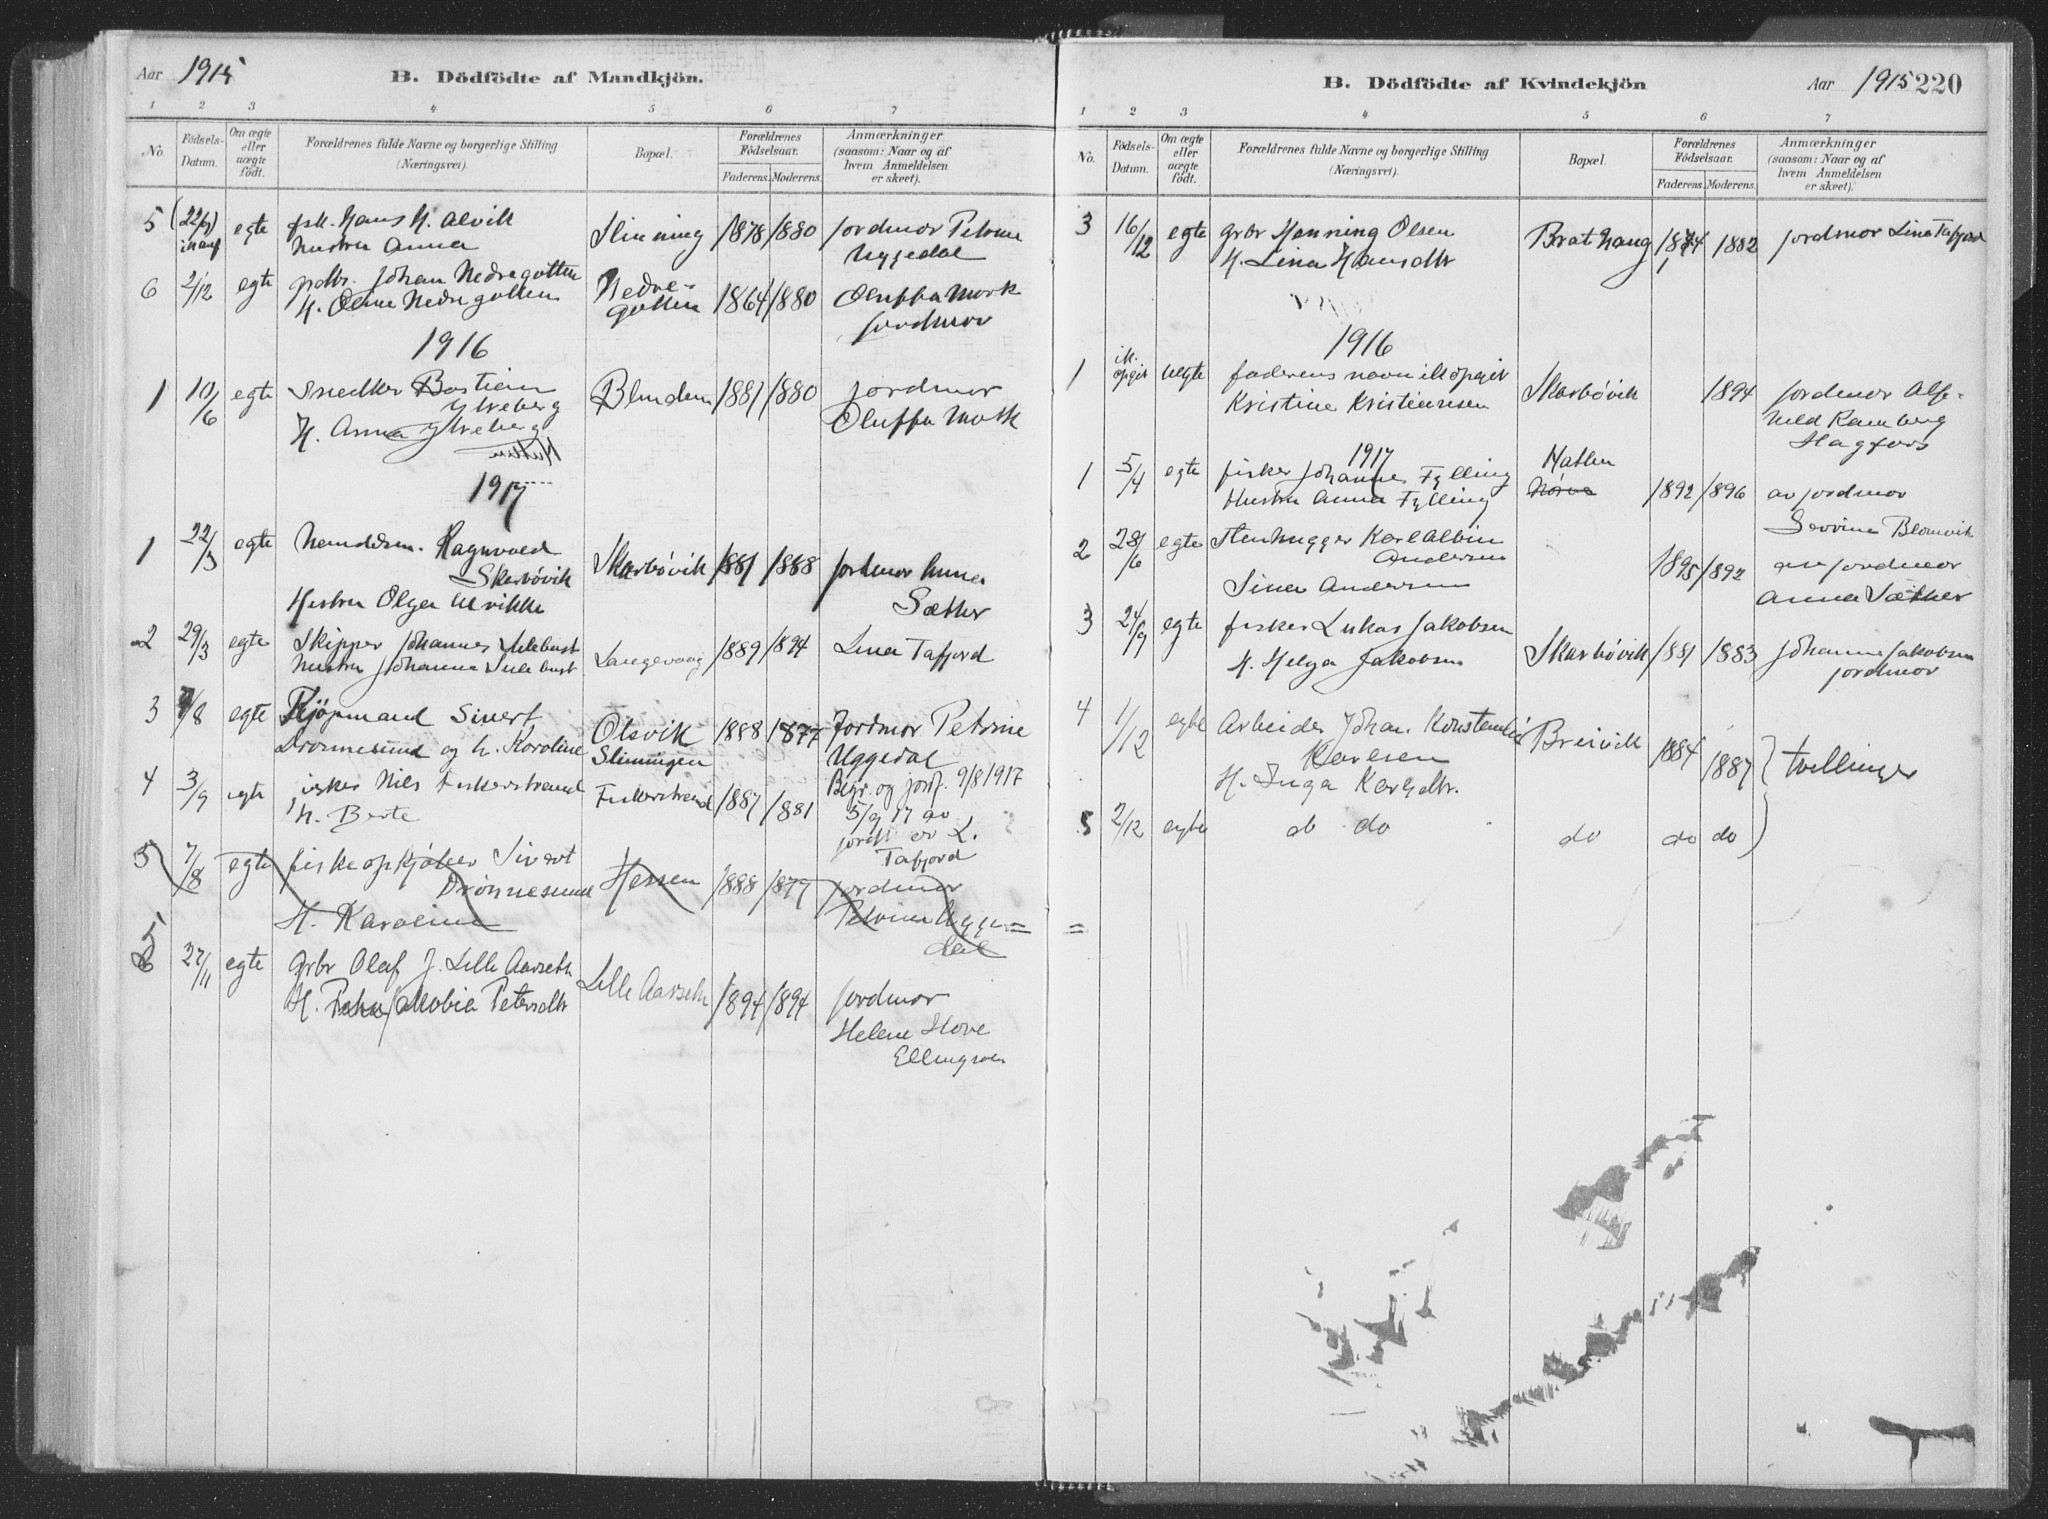 Aar 1915
B. Dödfödte af Mandkjön.
1 2 3 4 5 6 7
No.
Födsels-Datum.
Om ægte eller uægte födt.
Forældrenes fulde Navne og borgerlige Stilling
(Næringsvei).
Bopæl.
Forældrenes Födselsaar.
Faderens. Moderens.
Anmærkninger
(saasom: Naar og af
hvem Anmeldelsen
er skeet).
5 (22/9) egte fsk. Hans H. Alvik Slinning 1878 1880 jordmor Petrine
hustru Anna Uggedal
6 2/12 egte grdbr. Johan Nedregotten Nedre- 1864 1880 Oluffa Mork
H. Oline Nedregotten gotten jordmor
1916
1 10/6 egte Snedker Bastian Blindem 1881 1880 jordmor
Ytreberg Oluffa Mork
H. Anna Ytreberg
1917
1 22/3 egte Handelsm. Ragnvald Skarbövik 1881 1888 jordmor Anna
Skarbövik Sæther
Hustru Olga Ulvikke
2 29/3 egte Skipper Johannes Sulebust Langevaag 1889 1894 Lina Tafjord
hustru Johanna Sulebust
3 7/8 egte Kjöpmand Sivert Olsvik 1888 1877 Jordmor Petrine
Drönnesund og h. Karoline Slinningen Uggedal
Begr. og jordf. 9/8 1917
4 3/9 egte fisker Nils Fiskerstrand Fiskerstrand 1887 1881 5/9 17 av
h. Berte jordmor L.
Tafjord
5 7/8 egte fiskeopkjöber Sivert Hessen 1888 1877 jordmor
Drönnesund Petrine Ugge=
H. Karoline dal
5 27/11 egte Grbr Olaf J. Lille Aarseth Lille Aarseth 1894 1894 jordmor
H. Jakobia Petersdtr Helene Hove
Ellingsen
B. Dödfödte af Kvindekjön
Aar 1915 220
1 2 3 4 5 6 7
No.
Födsels-Datum.
Om ægte eller uægte födt.
Forældrenes fulde Navne og borgerlige Stilling
(Næringsvei).
Bopæl.
Forældrenes Födselsaar.
Faderens. Moderens.
Anmærkninger
(saasom: Naar og af
hvem Anmeldelsen
er skeet).
3 16/12 egte grbr Henning Olsen Brathaug 1874 1882 jordmor Lina Tafjord
H. Lina Hansdtr
1916
1 ik. opgit uegte faderens navn ik opgit Skarbövik 1894 jordmor Alf-
Kristine Kristiansen hild Ramberg
Hagfors
1917
1 5/4 egte fisker Johannes Fylling Hatlen 1892 1896 av jordmor
Hustru Anna Fylling Nörve Severine Blomvik
2 28/6 egte Stenhugger Karl Albin 1895 1892 av jordmor
Andersen Anna Sæther
Sina Andersen
3 24/9 egte fisker Lukas Jakobsen Skarbövik 1881 1883 Johanne Jakobsen
H. Helga Jakobsen jordmor
4 1/12 egte Arbeider Johan Konstantin Breivik 1884 1887 } tvillinger
Karlsen
H. Inga
5 2/12 egte do do do do do
=